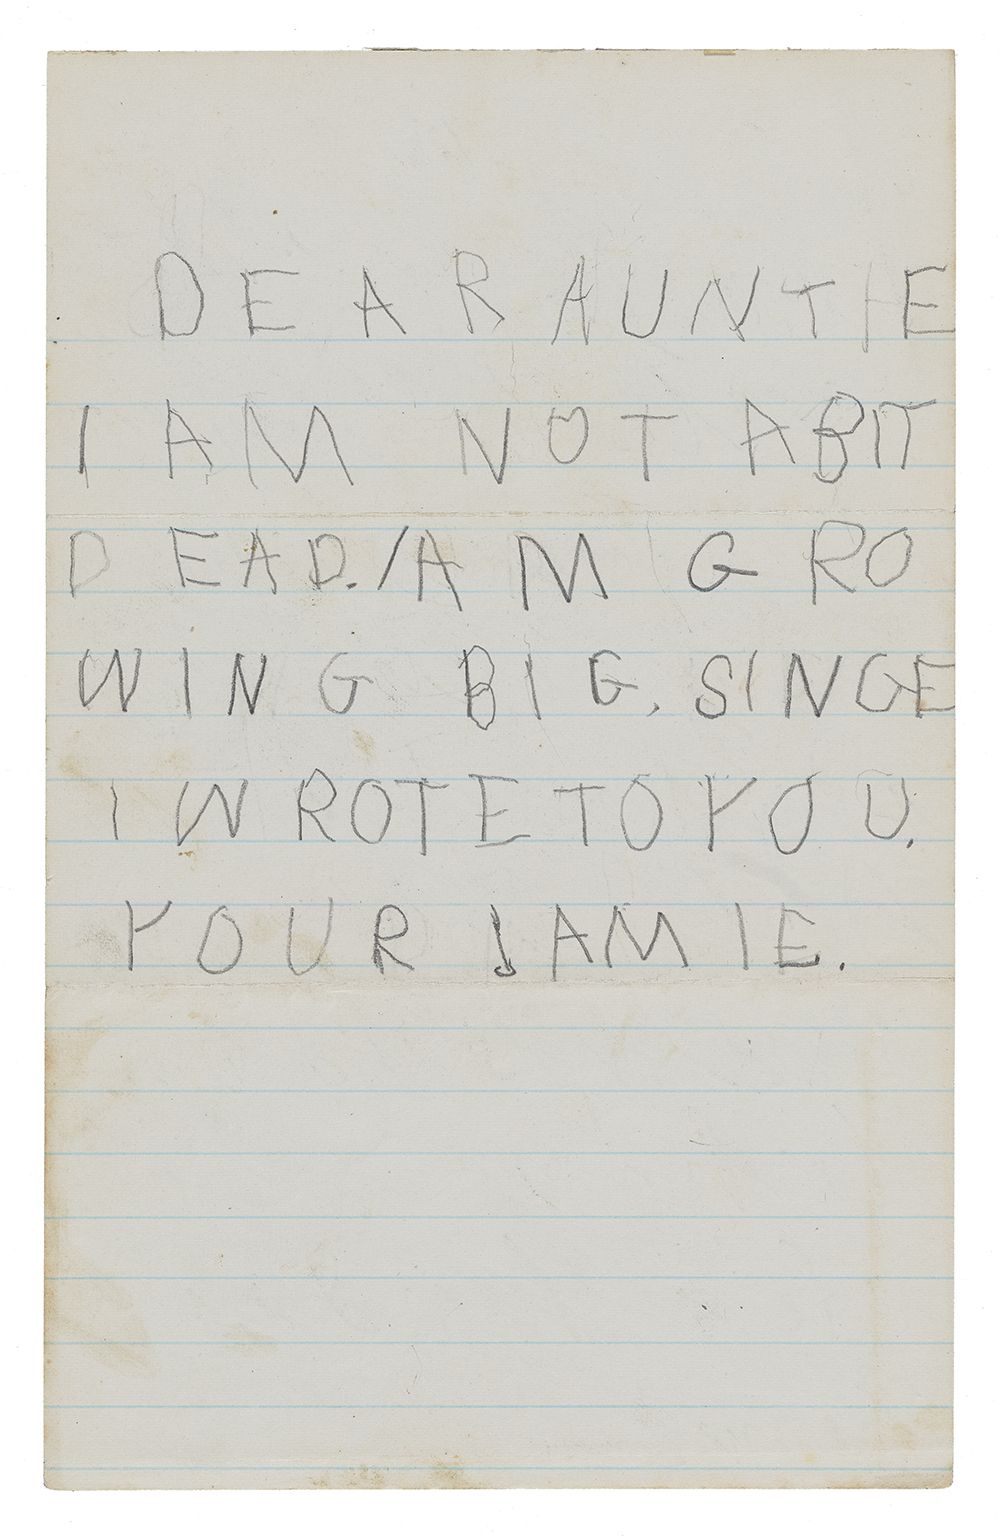 DEAR AUNTIE
I AM NOT A BIT
DEAD. I AM GRO
WING BIG, SINGE
I WROTE TO YOU.
YOUR JAMIE.